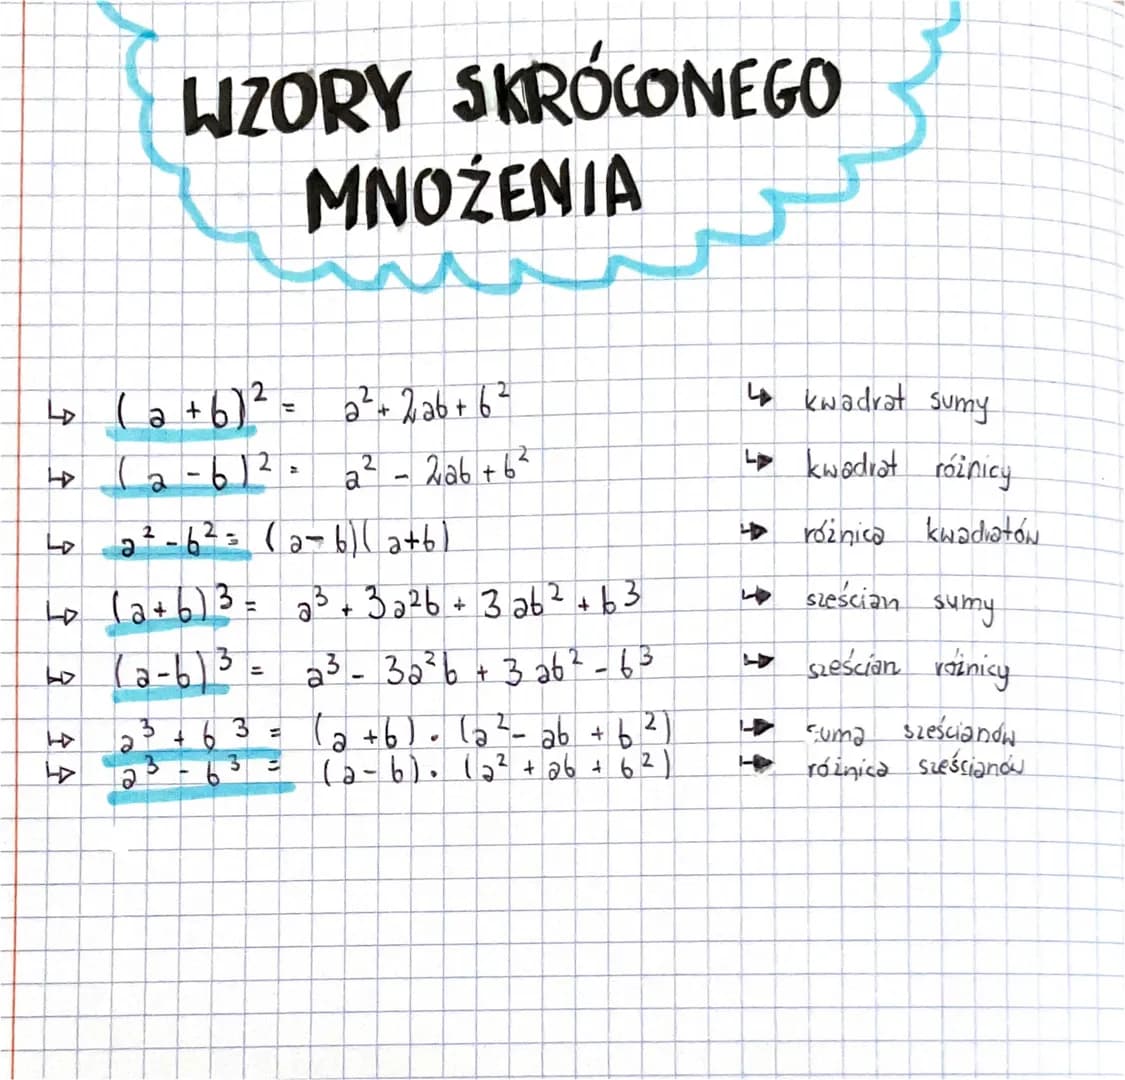 WZORY SKRÓCONEGO
MNOŻENIA
↳ (a+b)² = a² + 2ab + b² ↳ kwadrat sumy
↳ (a-b)² = a² - 2ab + b² ↳ kwadrat różnicy
↳ a² - b² = (a-b)(a+b) ↳ różnica kwadratów
↳ (a+b)³ = a³ + 3a²b + 3ab² + b³ ↳ sześcian sumy
↳ (a-b)³ = a³ - 3a²b + 3ab² - b³ ↳ sześcian różnicy
↳ a³ + b³ = (a+b)·(a² - ab + b²) ↳ suma sześcianów
↳ a³ - b³ = (a-b)·(a² + ab + b²) ↳ różnica sześcianów